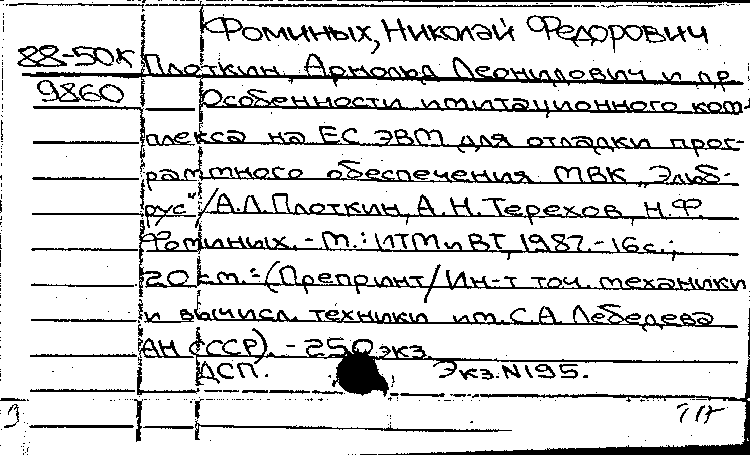 Фоминых, Николай Федорович
88-50к Плоткин, Арнольд Леонидович и др.
9860 Особенности имитационного ком-
плекса на ЕС ЭВМ для отладки прог-
раммного обеспечения МВК „Эльб-
рус"/А.Л.Плоткин, А.Н.Терехов, Н.Ф.
Фоминых. - М.: ИТМиВТ, 1987. - 16с.;
20 см. - (Препринт/Ин-т точ. механики
и вычисл. техники им. С.А. Лебедева
АН СССР). - 250 экз.
ДСП. Экз.N195.